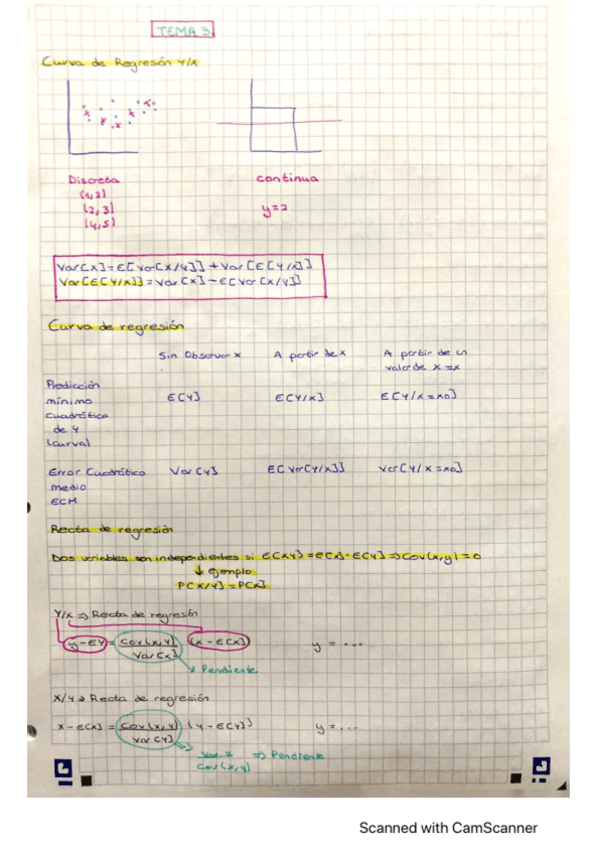 TEMA 3
Curva de Regresión Y/X
Discreta
continua
(1,2)
(2,3)
y=2
(4,5)
Var[X]=E[Var[X/Y]]+Var[E[Y/X]]
Var[E[Y/X]]=Var[X]-E[Var[X/Y]]
Curva de regresión
Sin Observar x
A partir de x
A partir de un
valor de X=x
Predicción
mínimo
Cuadrática
de Y
(curva)
E[Y]
E[Y/X]
E[Y/X=x0]
Error Cuadrático
medio
ECM
Var[Y]
E[Var[Y/X]]
Var[Y/X=x0]
Recta de regresión
Dos variables son independientes si E[XY]=E[X]·E[Y]⇒Cov(x,y)=0
↓ ejemplo
P[X/Y]=P[X]
Y/X ⇒ Recta de regresión
y-EY = Cov(X,Y) (x-E[X])
Var[X]
y = ...
→ Pendiente
X/Y ⇒ Recta de regresión
x-E[X] = Cov(X,Y) (y-E[Y])
Var[Y]
y = ...
Var X ⇒ Pendiente
Cov(X,Y)
Scanned with CamScanner